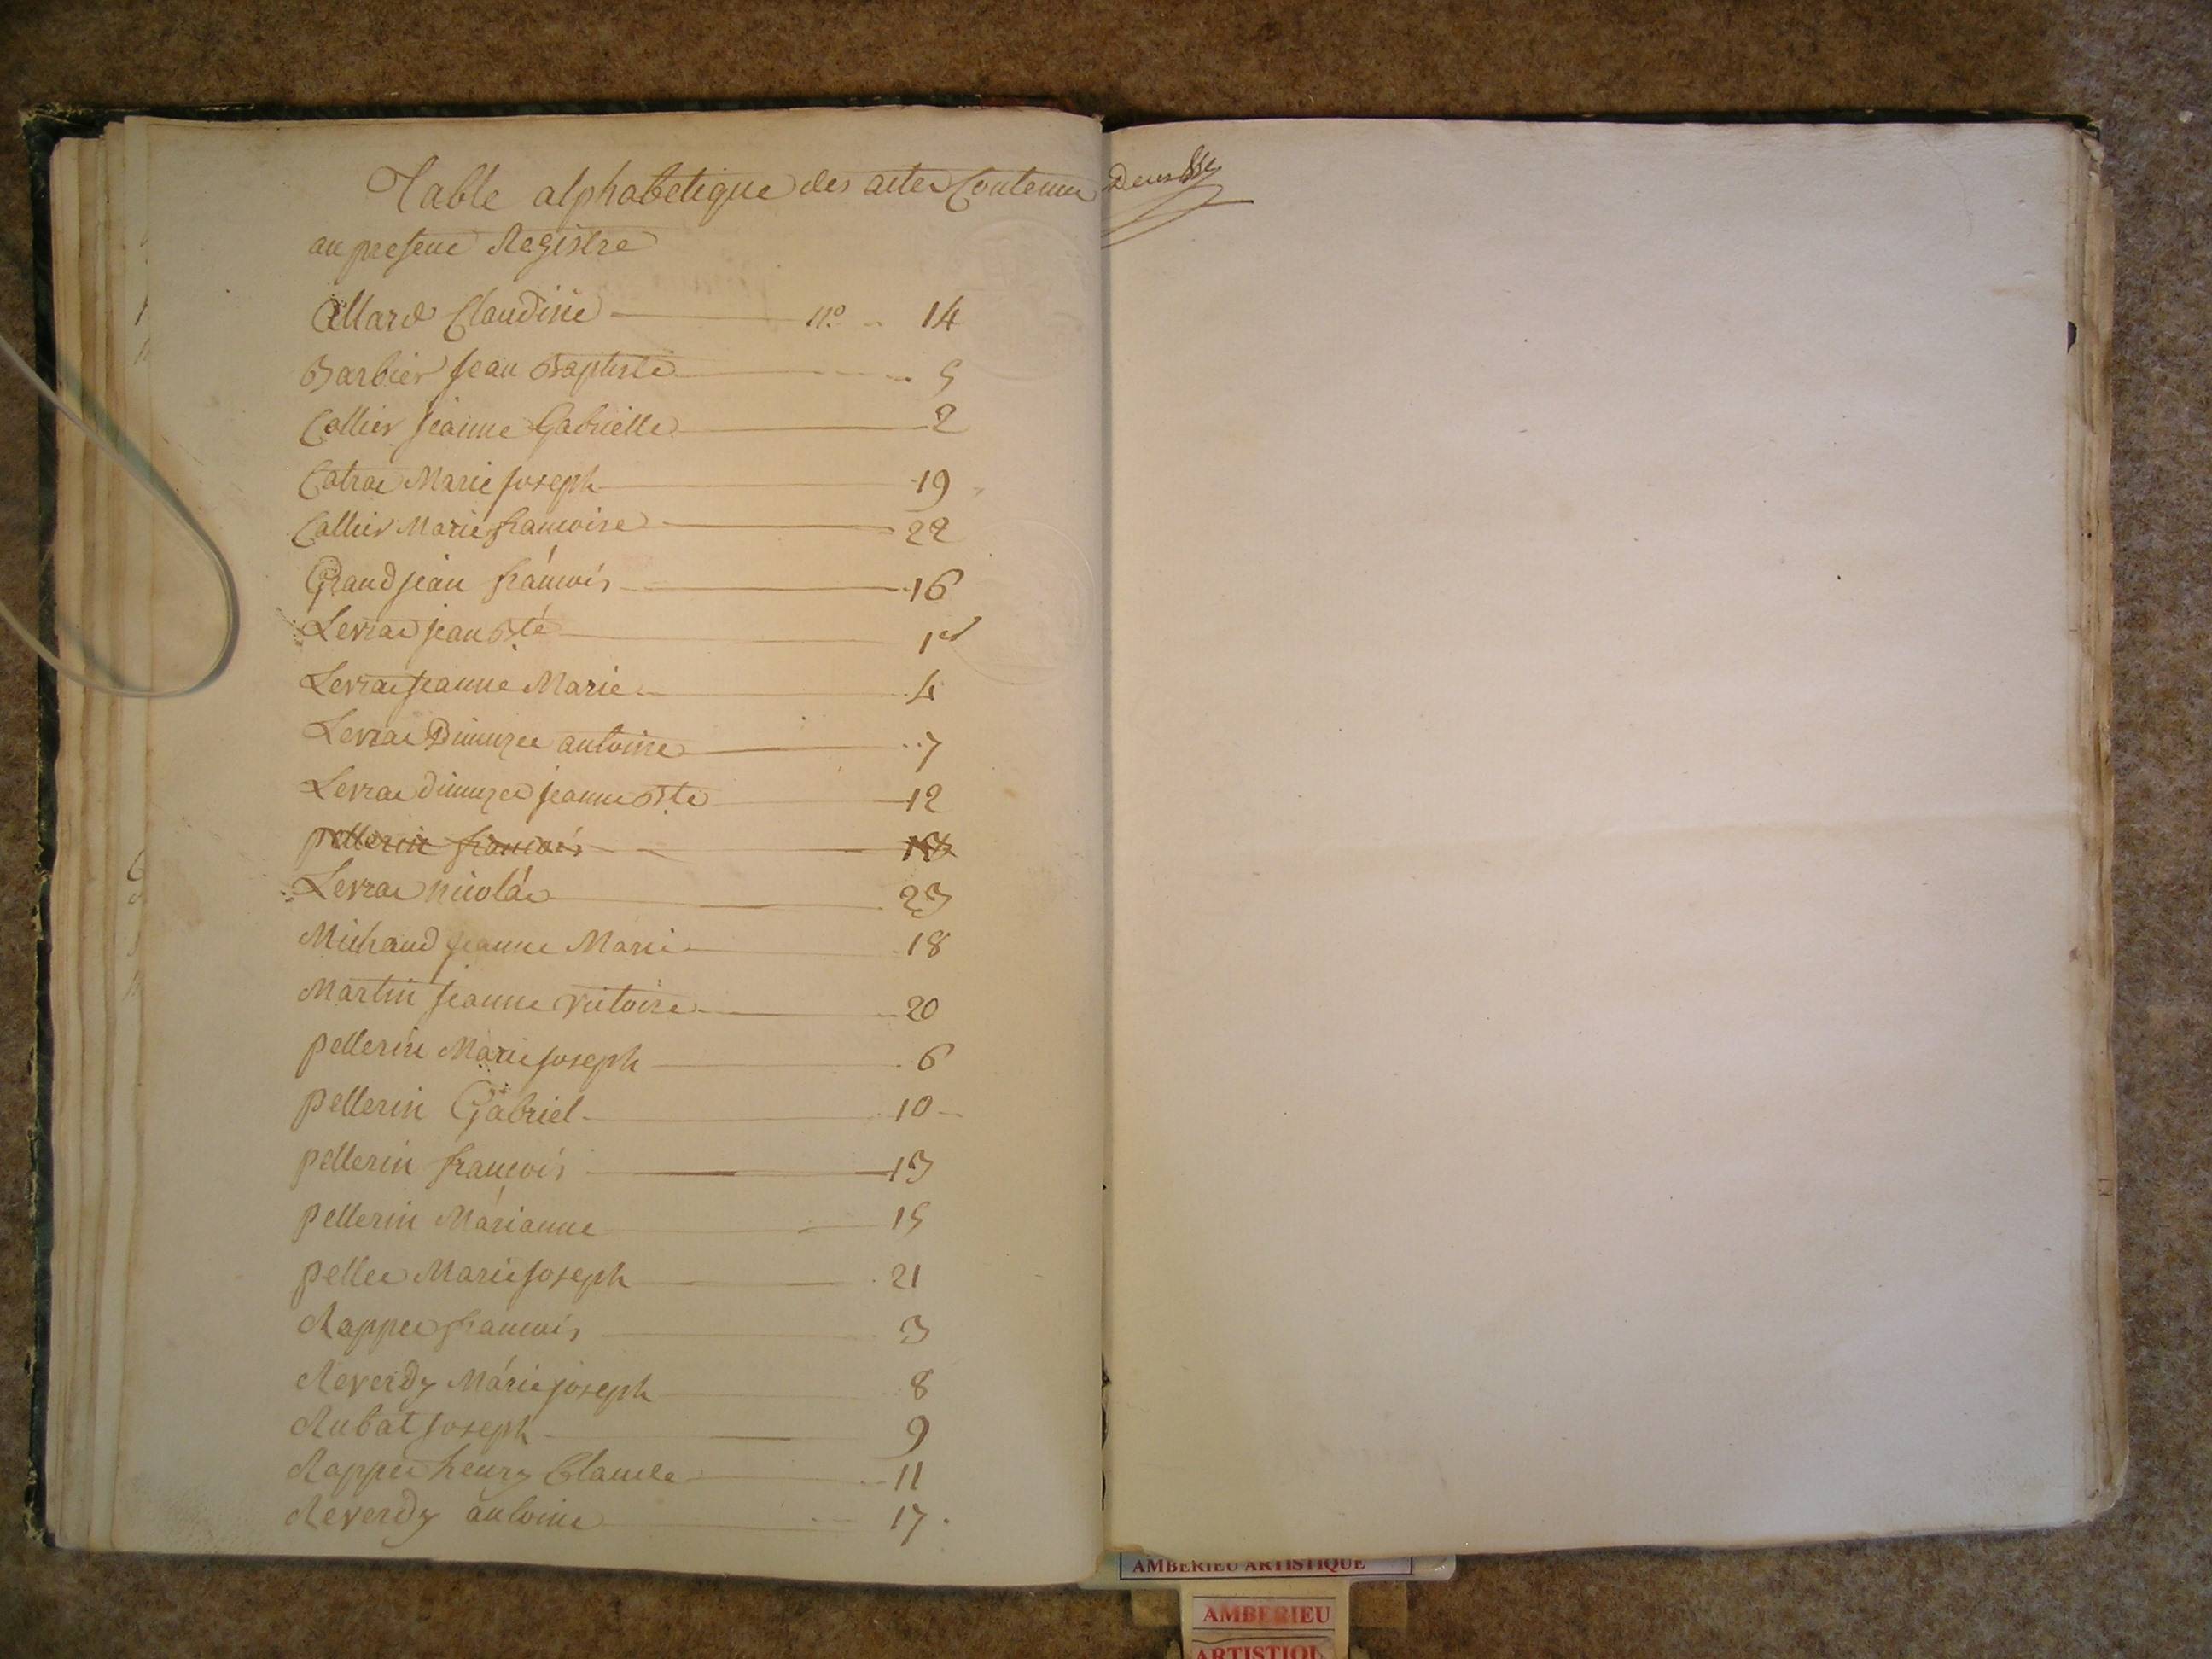 Table alphabetique des actes Contenus
au present Registre
Allard Claudine n.o 14
Barbier Jean Baptiste 5
Collier Jeanne Gabrielle 2
Catrae Marie Joseph 19
Callier Marie francoise 22
Grandjean francois 16
Levrae jean Bte 1er
Levrae Jeanne Marie 4
Levrae antoine 7
Levrae jeanne Bte 12
pellerin francois
Levrae nicolas 23
Michaud Jeanne Marie 18
Martin Jeanne victoire 20
pellerin Marie Joseph 6
pellerin Gabriel 10
pellerin francois 13
pellerin Marianne 15
pellee Marie Joseph 21
Rappee francois 3
Reverdy Marie joseph 8
Rubat Joseph 9
Rappee henry Claude 11
Reverdy antoine 17.
AMBERIEU ARTISTIQUE
AMBERIEU
ARTISTIQU